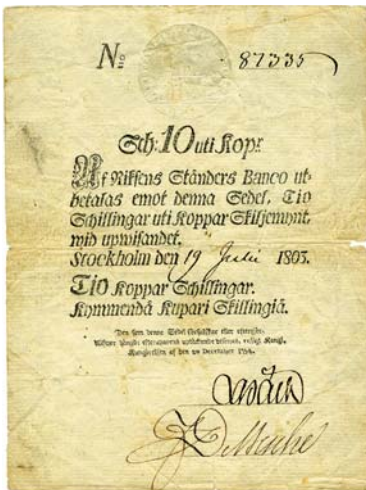 No 87335
Sch: 10 uti Kopr
Af Riksens Ständers Banco ut-
betalas emot denna Sedel, Tio
Schillingar uti Koppar Skiljemynt,
wid upwisandet.
Stockholm den 19 Julii 1803.
Tio Koppar Schillingar.
Kymmendä Kupari Skillingiä.
Den som denna Sedel förfalskar eller efterapar,